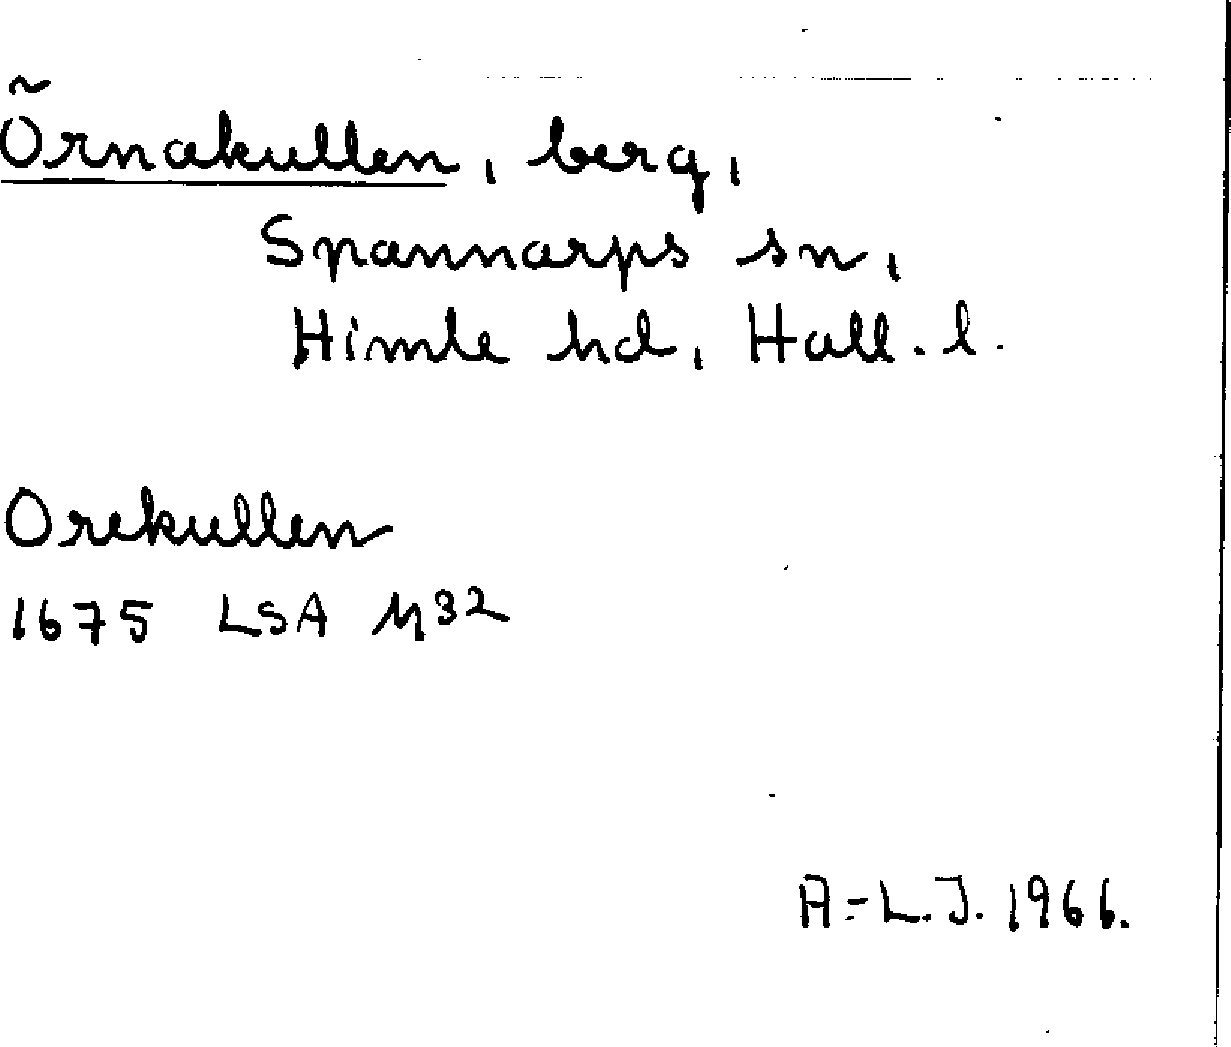 Örnakullen, berg,
Spannarps sn,
Himle hd, Hall. l.
Orekullen
1675 LSA M32
A-L.J. 1966.